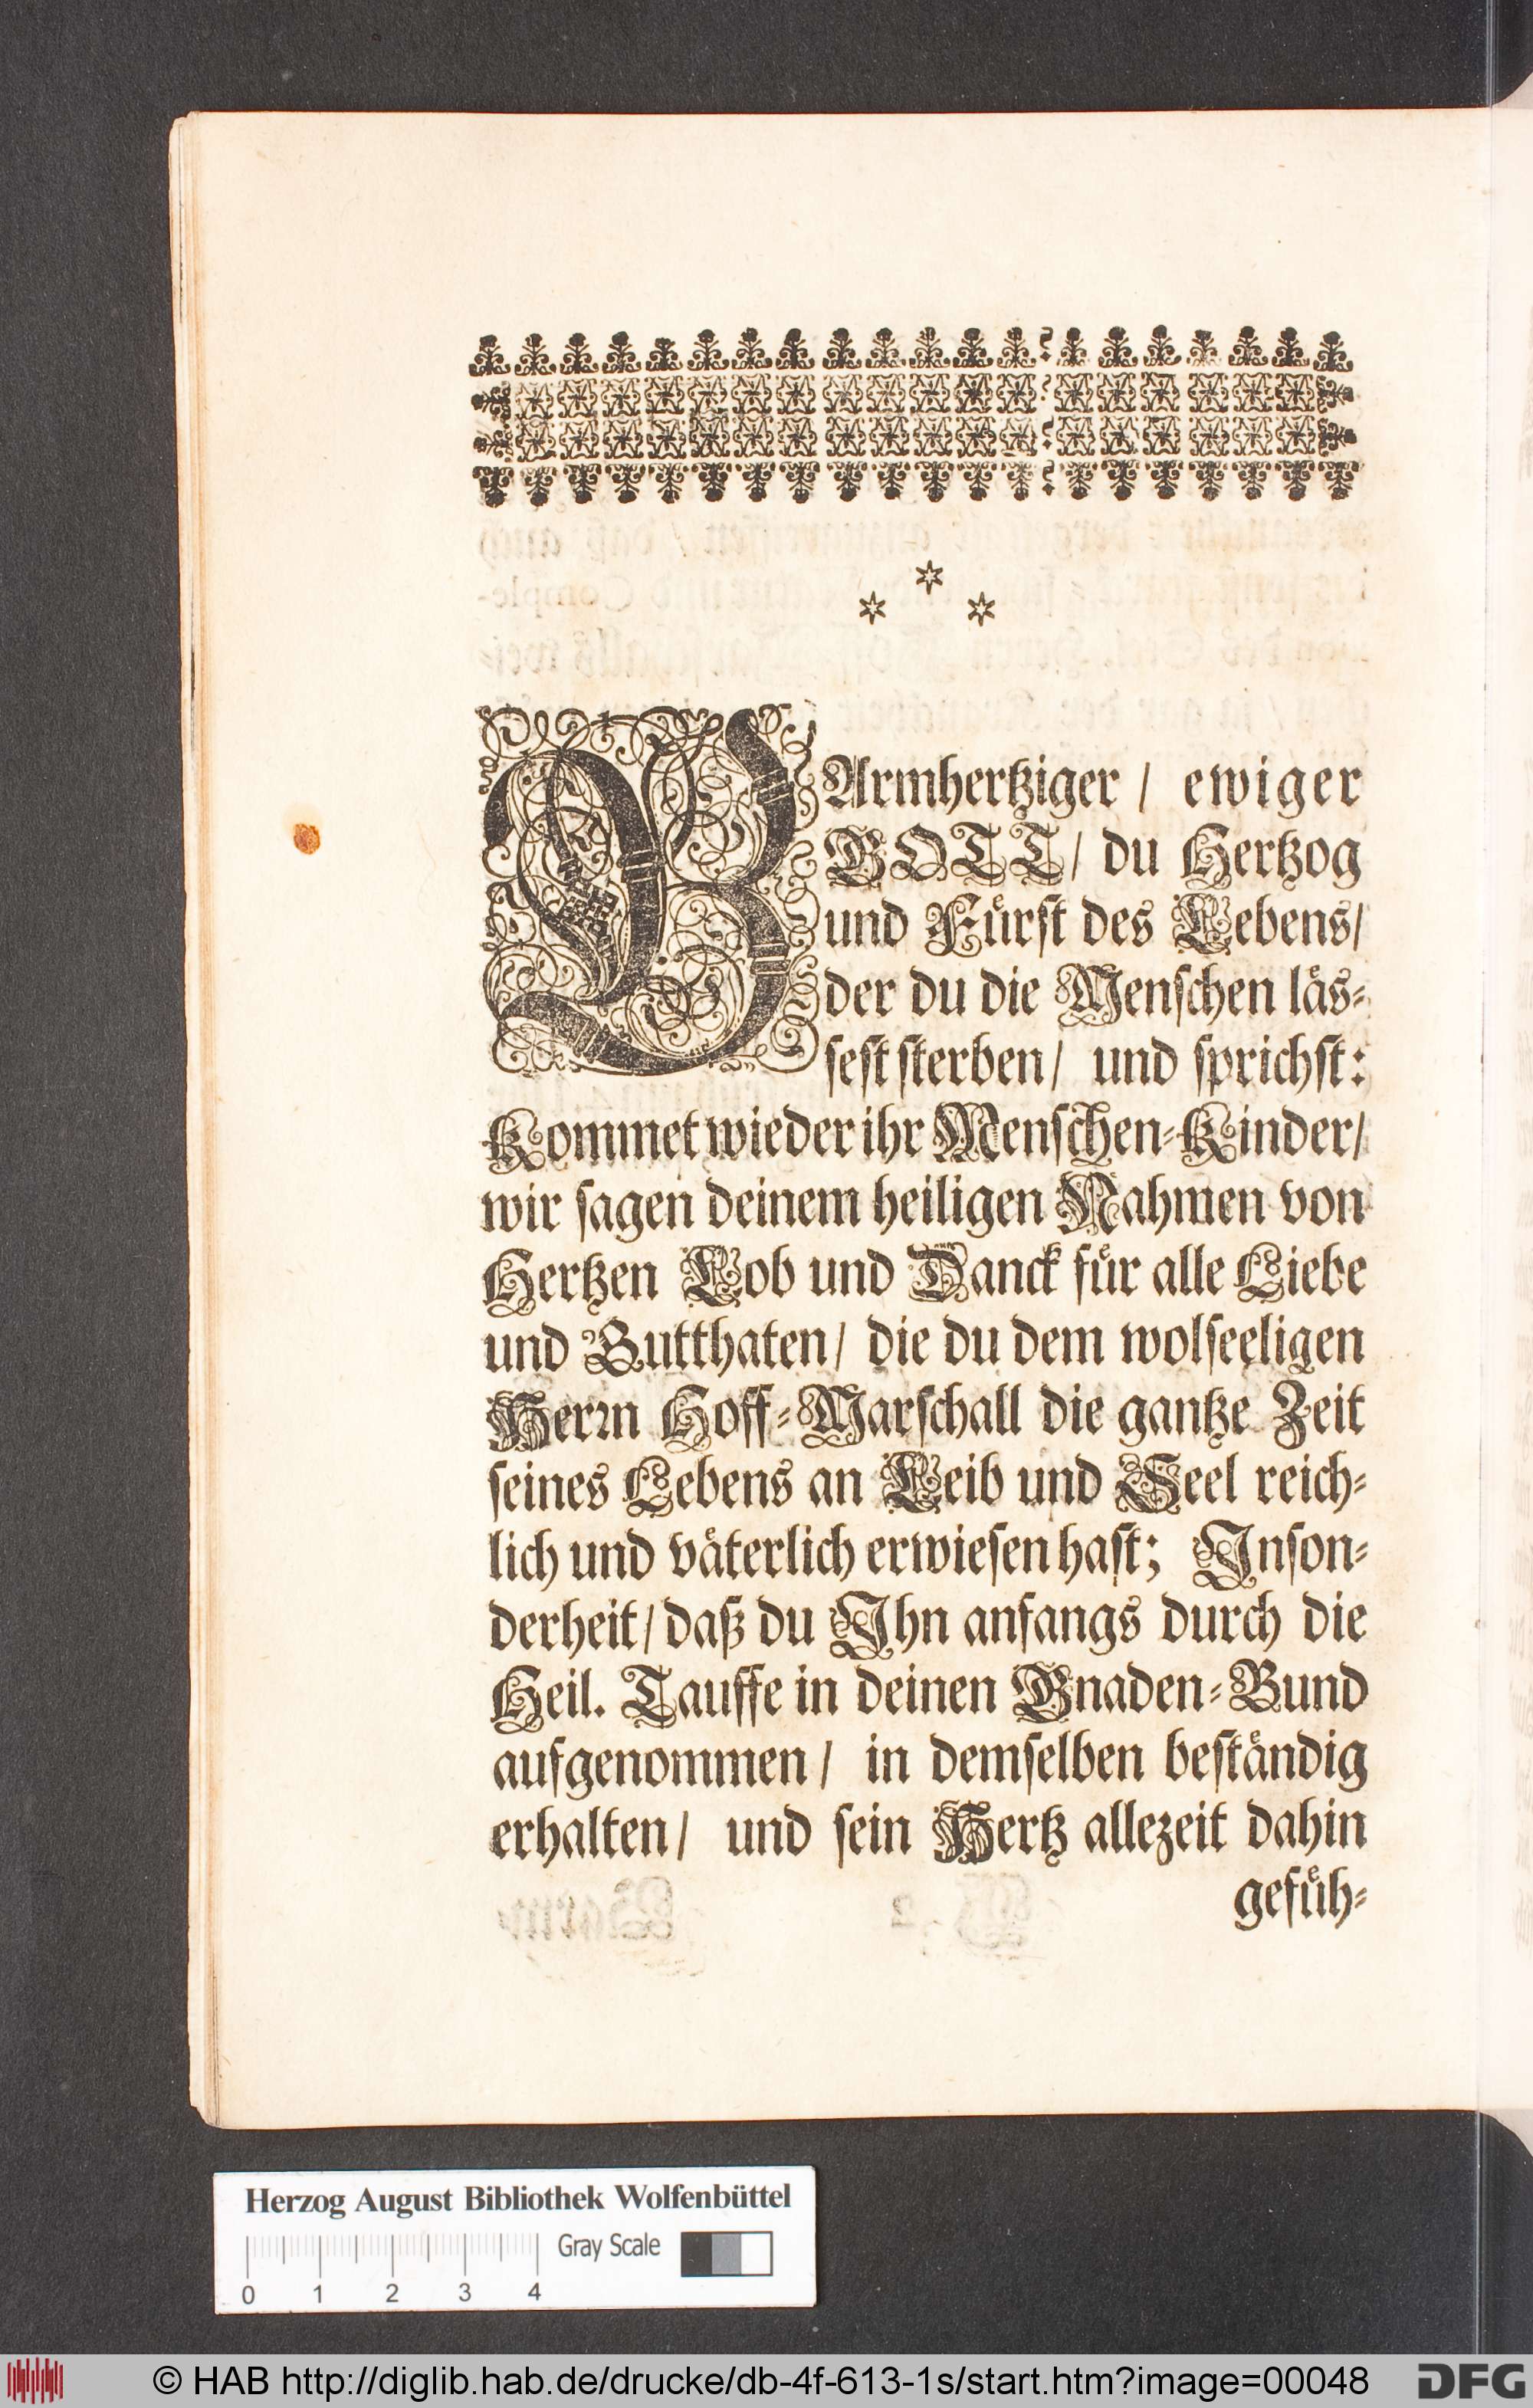 BArmhertziger / ewiger
GOTT / du Hertzog
und Fuͤrst des Lebens /
der du die Menschen laͤs-
sest sterben / und sprichst:
Kommet wieder ihr Menschen-Kinder /
wir sagen deinem heiligen Nahmen von
Hertzen Lob und Danck fuͤr alle Liebe
und Gutthaten / die du dem wolseeligen
Herꝛn Hoff-Marschall die gantze Zeit
seines Lebens an Leib und Seel reich-
lich und vaͤterlich erwiesen hast; Inson-
derheit / daß du Ihn anfangs durch die
Heil. Tauffe in deinen Gnaden-Bund
aufgenommen / in demselben bestaͤndig
erhalten / und sein Hertz allezeit dahin
gefuͤh-
Herzog August Bibliothek Wolfenbüttel
Gray Scale
0 1 2 3 4
© HAB http://diglib.hab.de/drucke/db-4f-613-1s/start.htm?image=00048
DFG